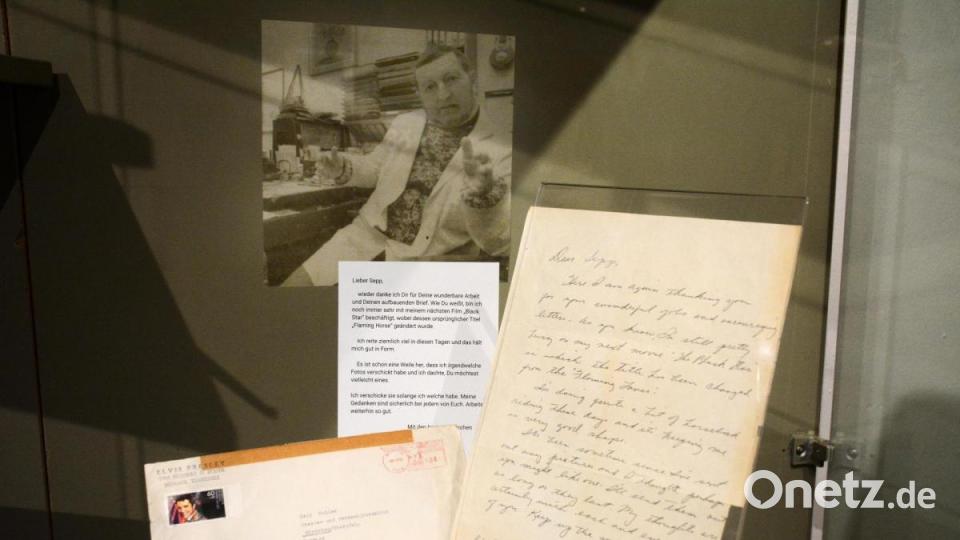 Lieber Sepp,
wieder danke ich Dir für Deine wunderbare Arbeit
und Deinen aufbauenden Brief. Wie Du weißt, bin ich
noch immer sehr mit meinem nächsten Film „Black
Star" beschäftigt, wobei dessen ursprünglicher Titel
„Flaming Horse" geändert wurde.
Ich reite ziemlich viel in diesen Tagen und das hält
mich gut in Form.
Es ist schon eine Weile her, dass ich irgendwelche
Fotos verschickt habe und ich dachte, Du möchtest
vielleicht eines.
Ich verschicke sie solange ich welche habe. Meine
Gedanken sind sicherlich bei jedem von Euch. Arbeite
weiterhin so gut.
Mit den
Dear Sepp,
Here I am again thanking you
for your wonderful jobs and encouraging
letter. As you know I'm still pretty
busy on my next movie "The Black Star"
in which the title has been changed
from the "Flaming
I'm doing quite a bit of horseback
riding these days and it's keeping me
in very good shape.
It's been sometime since I've sent
out any pictures and I thought perhaps
you might like one. I'll send them out
as long as they last. My thoughts are
of you. Keep up the
ELVIS PRESLEY
MEMPHIS, TENNESSEE
Onetz.de